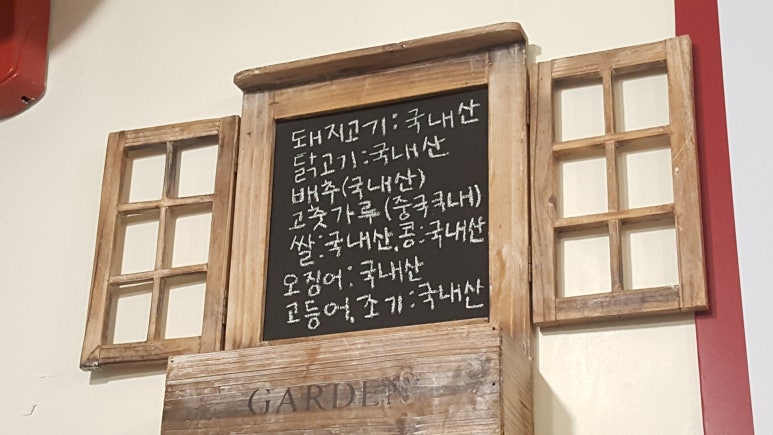 돼지고기:국내산
닭고기:국내산
배추(국내산)
고춧가루(중국국내)
쌀:국내산,콩:국내산
오징어:국내산
고등어,조기:국내산
GARDEN